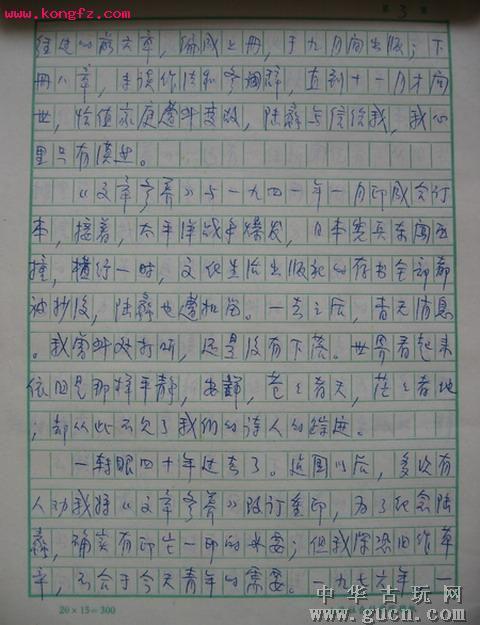 www.kongfz.com
第 3 页
经过的前六章，编成上册，于九月间出版；下
册八章，生活作法和穿插群，直到十一月才问
世，恰值家庭遭到变故，陆蠡写信给我，我心
里只有凄然。
《文章修养》与一九四一年一月印成合订
本，接着，太平洋战争爆发，日本宪兵东闯西
撞，横行一时，文化生活出版社的存书全部都
被抄没，陆蠡也遭扣留。一去之后，杳无消息
。我多次打听，还是没有下落。世界看起来
依旧是那样平静，安静，苍苍者天，茫茫者地
，却从此不见了我们的诗人的踪迹。
一转眼四十年过去了。这图以后，多次有
人劝我将《文章修养》改订重印，为了纪念陆
蠡，确实有印它一印的必要；但我深恐旧作草
率，不合于今天青年的需要。一九七六年，一
20×15=300
中华古玩网
www.gucn.com